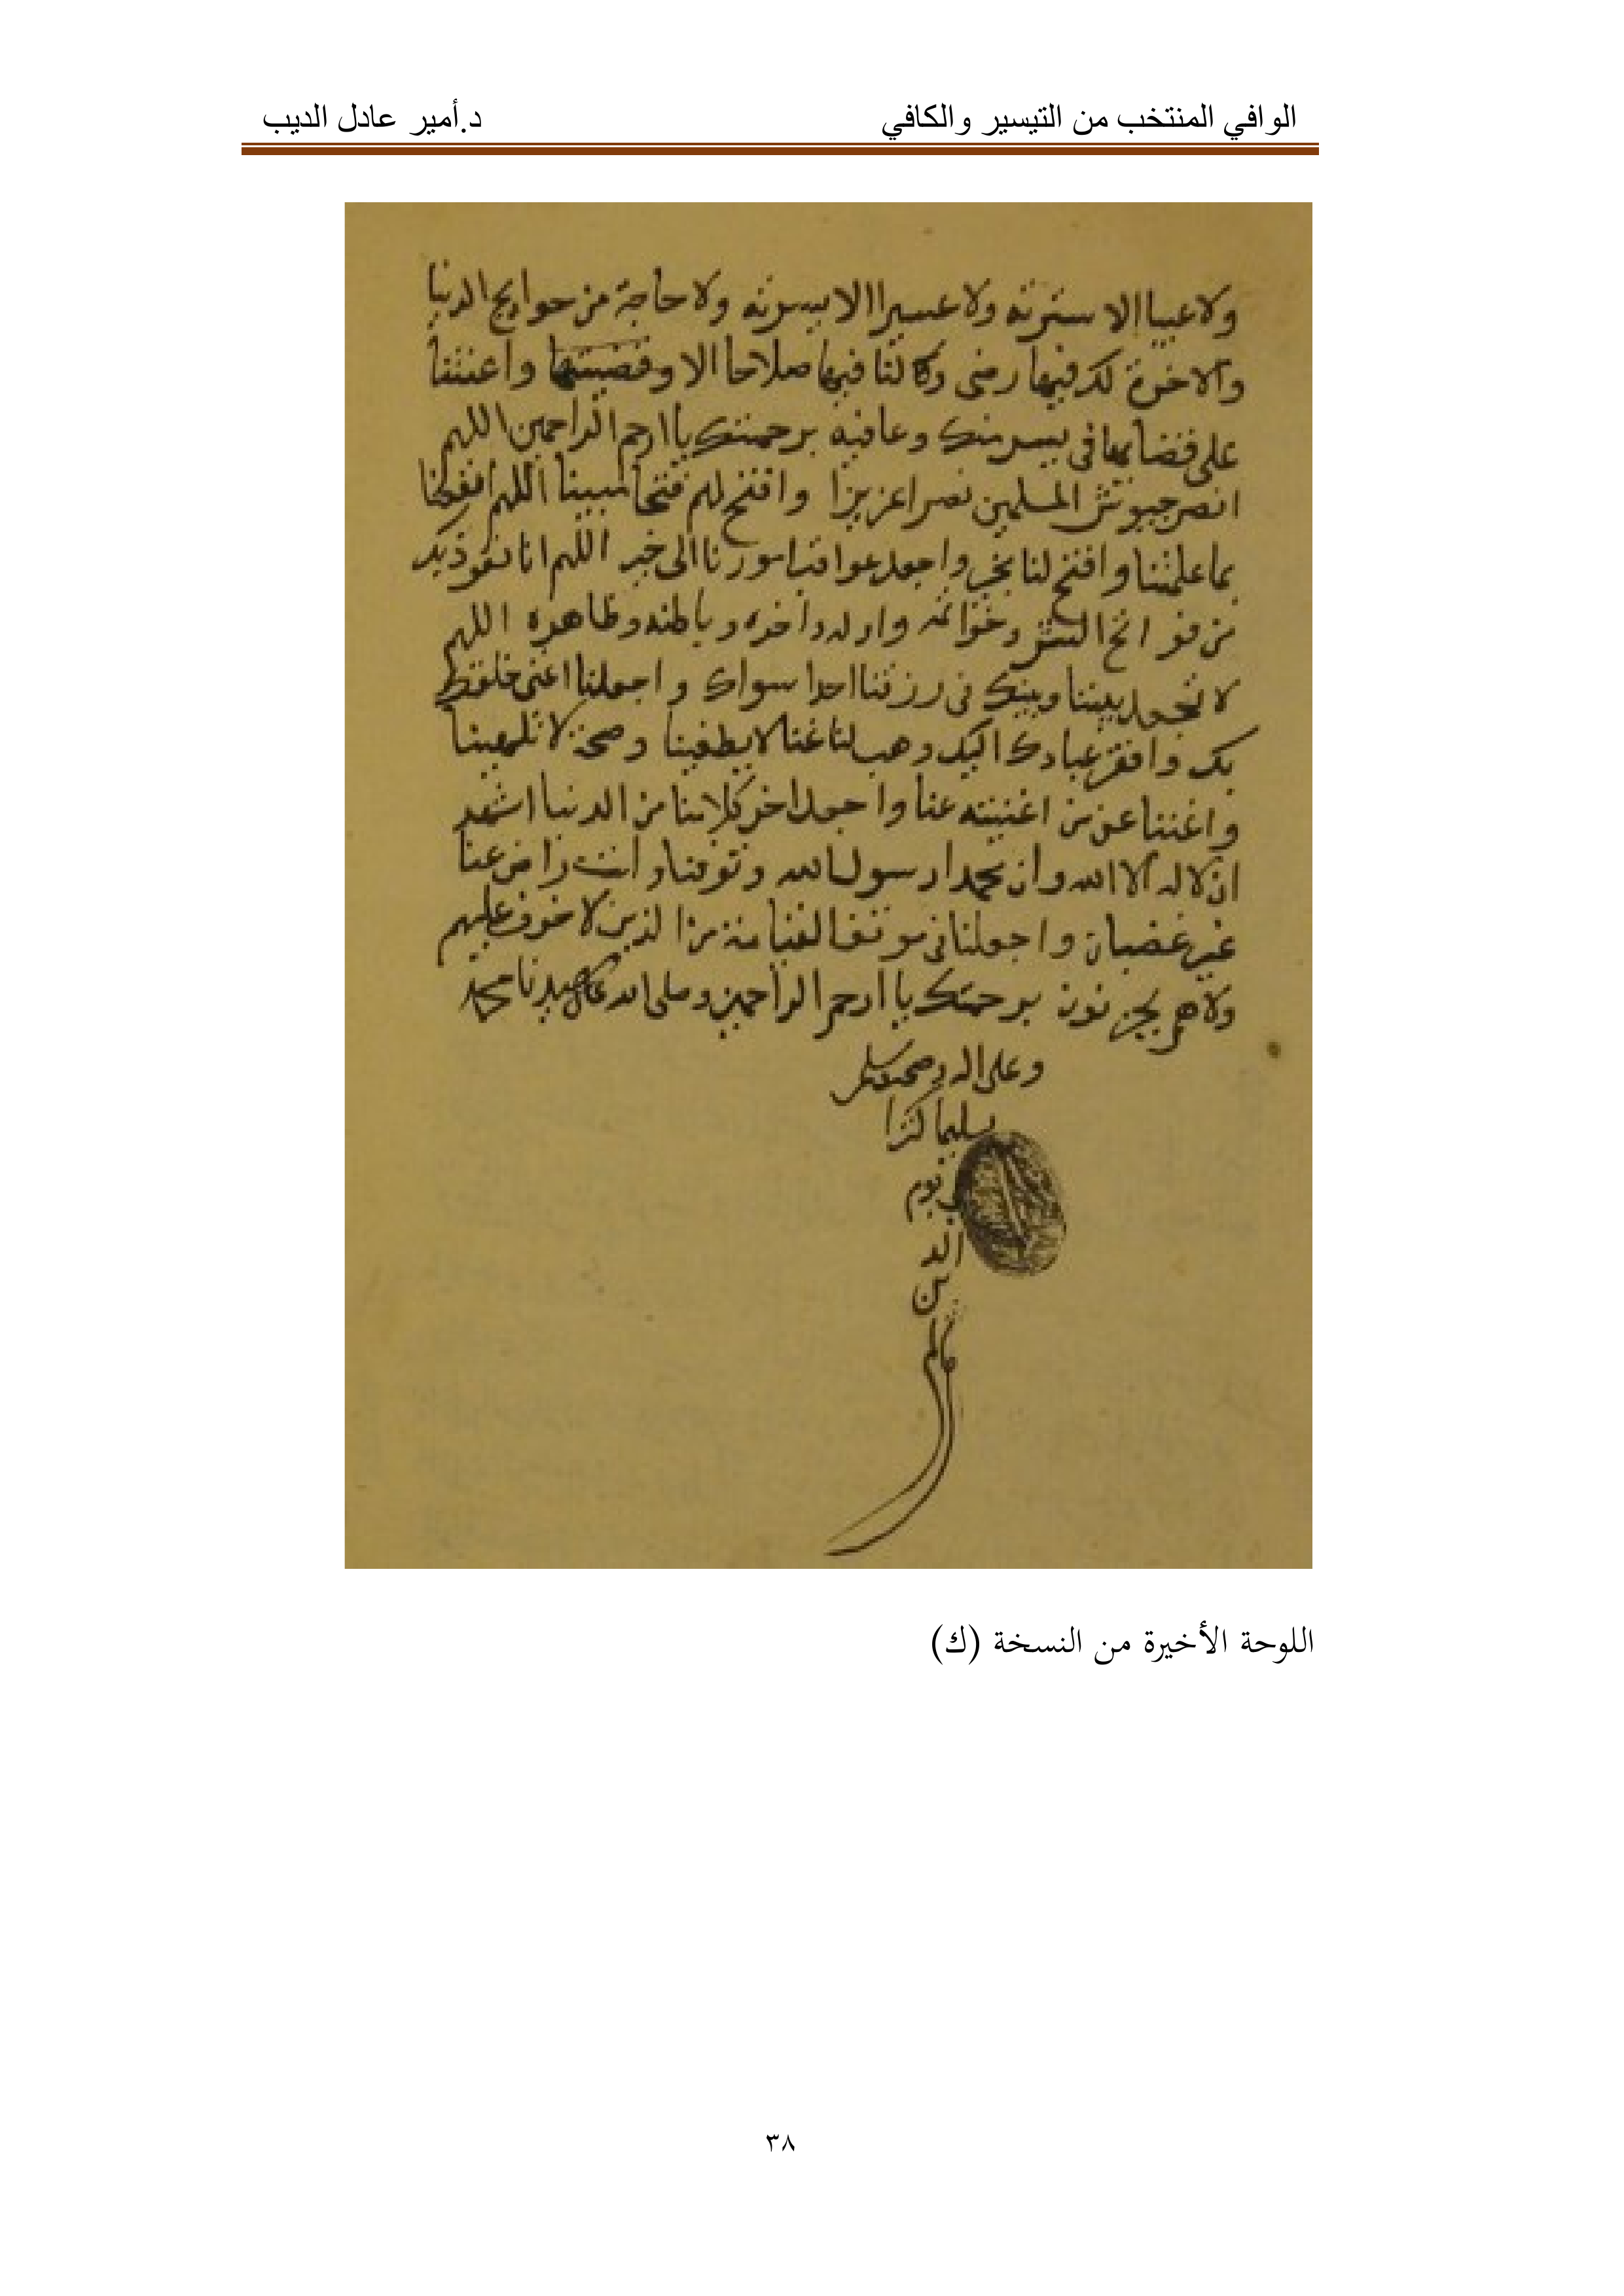 الوافي المنتخب من التيسير والكافي د.أمير عادل الديب
ولا عيبا الا سترته ولا عسيرا الا يسرته ولا حاجة من حوايج الدنيا
والاخرة لك فيها رضى ولنا فيها صلاحا الا وقضيتها واعنتنا
على قضايها في يسر منك وعافيه برحمتك يا ارحم الراحمين اللهم
انصر جيوش المسلمين نصرا عزيزا وافتح لهم فتحا مبينا اللهم انفعنا
بما علمتنا وافتح لنا بخير واجعل عواقب امورنا الى خير اللهم انا نعوذ بك
من فواتح الشر وخواتمه واوله واخره وباطنه وظاهره اللهم
لا تجعل بيننا وبينك في رزقنا احدا سواك واجعلنا اغنى خلقك
بك وافقر عبادك اليك وهب لنا غنا لا يطغينا وصحة لا تلهينا
واغننا عن من اغنيته عنا واجعل اخر كلامنا من الدنيا اشهد
ان لا اله الا الله وان محمدا رسول الله وتوفنا وانت راض عنا
غير غضبان واجعلنا في موقف القيامة من الذين لا خوف عليهم
ولا هم يحزنون برحمتك يا ارحم الراحمين وصلى الله على سيدنا محمد
وعلى اله وصحبه وسلم
تسليما كثيرا
يوم
الد
ين
اللوحة الأخيرة من النسخة (ك)
٣٨